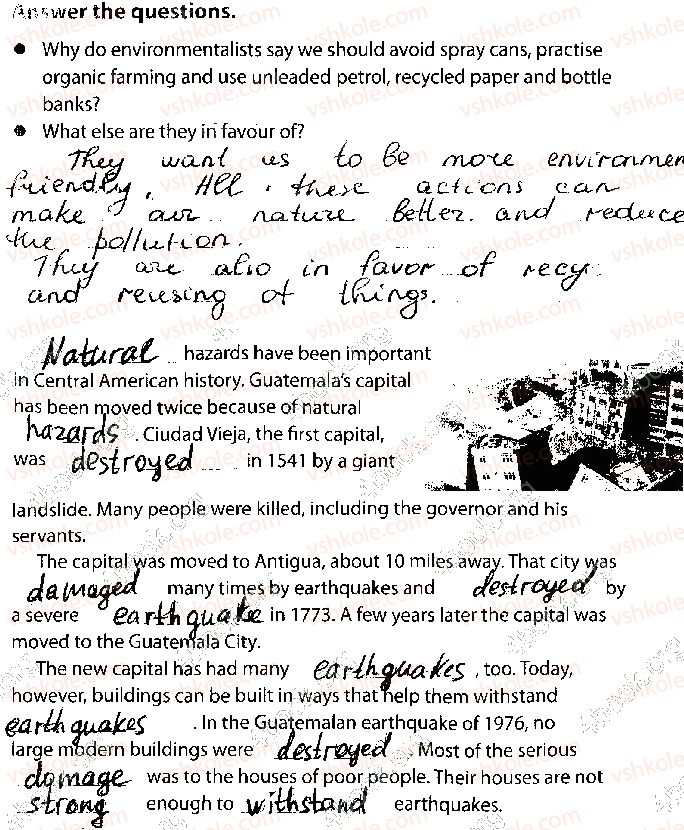 Answer the questions.
● Why do environmentalists say we should avoid spray cans, practise
organic farming and use unleaded petrol, recycled paper and bottle
banks?
● What else are they in favour of?
They want us to be more environmen
friendly. All these actions can
make our nature better and reduce
the pollution.
They are also in favor of recy
and reusing of things.
Natural hazards have been important
in Central American history. Guatemala's capital
has been moved twice because of natural
hazards. Ciudad Vieja, the first capital,
was destroyed in 1541 by a giant
landslide. Many people were killed, including the governor and his
servants.
The capital was moved to Antigua, about 10 miles away. That city was
damaged many times by earthquakes and destroyed by
a severe earthquake in 1773. A few years later the capital was
moved to the Guatemala City.
The new capital has had many earthquakes, too. Today,
however, buildings can be built in ways that help them withstand
earthquakes. In the Guatemalan earthquake of 1976, no
large modern buildings were destroyed. Most of the serious
damage was to the houses of poor people. Their houses are not
strong enough to withstand earthquakes.